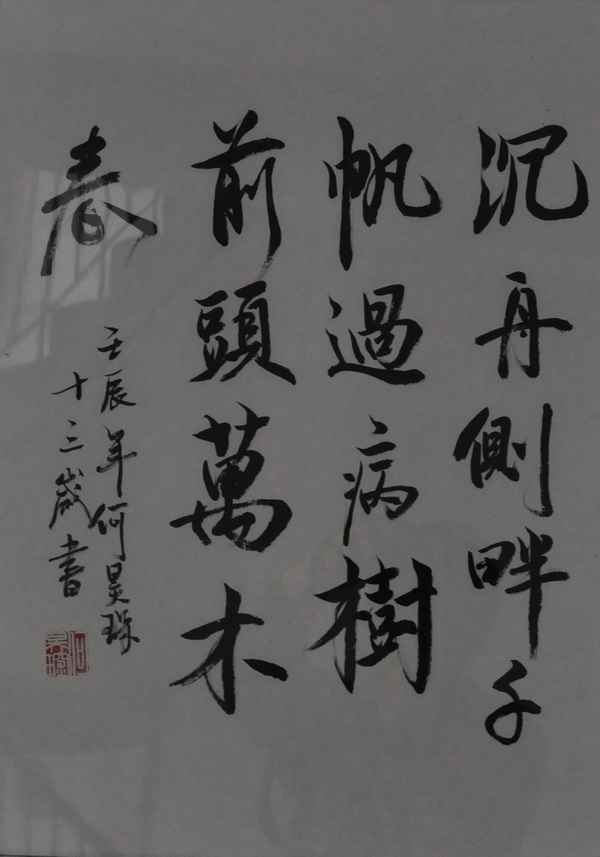 沉舟側畔千
帆過病樹
前頭萬木
春
壬辰年何昊琛
十三歲書